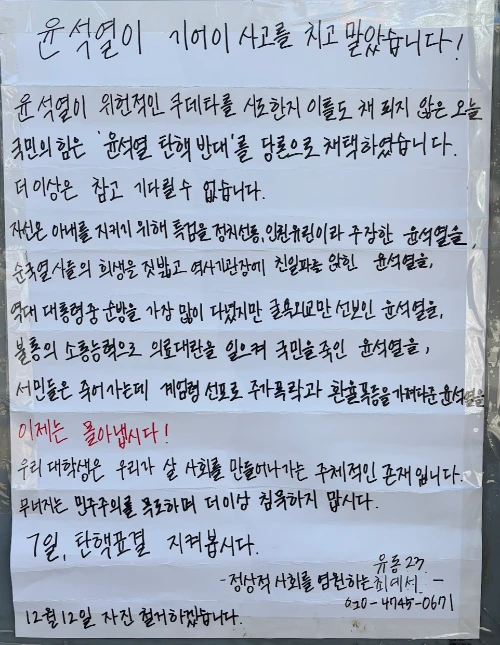 윤석열이 기어이 사고를 치고 말았습니다!
윤석열이 위헌적인 쿠데타를 시도한지 이틀도 채 되지 않은 오늘
국민의힘은 '윤석열 탄핵 반대'를 당론으로 채택하였습니다.
더 이상은 참고 기다릴 수 없습니다.
자신은 아내를 지키기 위해 특검을 정치선동, 인권유린이라 주장한 윤석열을,
순국열사들의 희생을 짓밟고 역사기관장에 친일파를 앉힌 윤석열을,
역대 대통령 중 순방을 가장 많이 다녔지만 굴욕외교만 선보인 윤석열을,
불통의 소통능력으로 의료대란을 일으켜 국민을 죽인 윤석열을,
서민들은 죽어가는데 계엄령 선포로 주가폭락과 환율폭등을 가져다준 윤석열을
이제는 몰아냅시다!
우리 대학생은 우리가 살 사회를 만들어나가는 주체적인 존재입니다.
무너지는 민주주의를 목도하며 더 이상 침묵하지 맙시다.
7일, 탄핵표결 지켜봅시다.
유통 23
-정상적 사회를 염원하는 최예서 -
010-4745-0671
12월 12일 자진 철거하겠습니다.